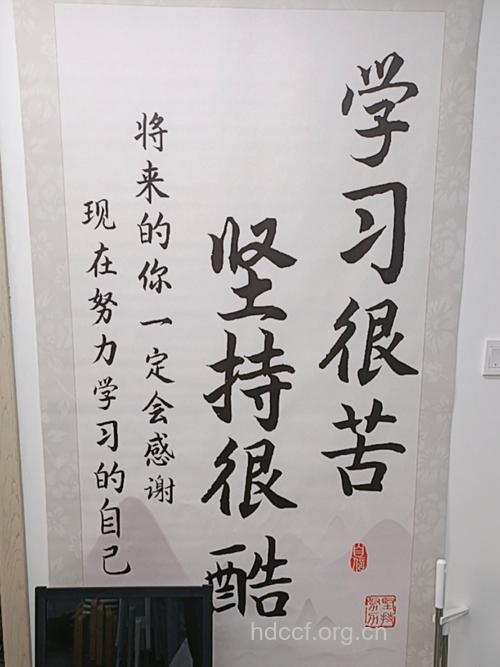 学习很苦
坚持很酷
将来的你一定会感谢
现在努力学习的自己
坚持
努力
hdccf.org.cn